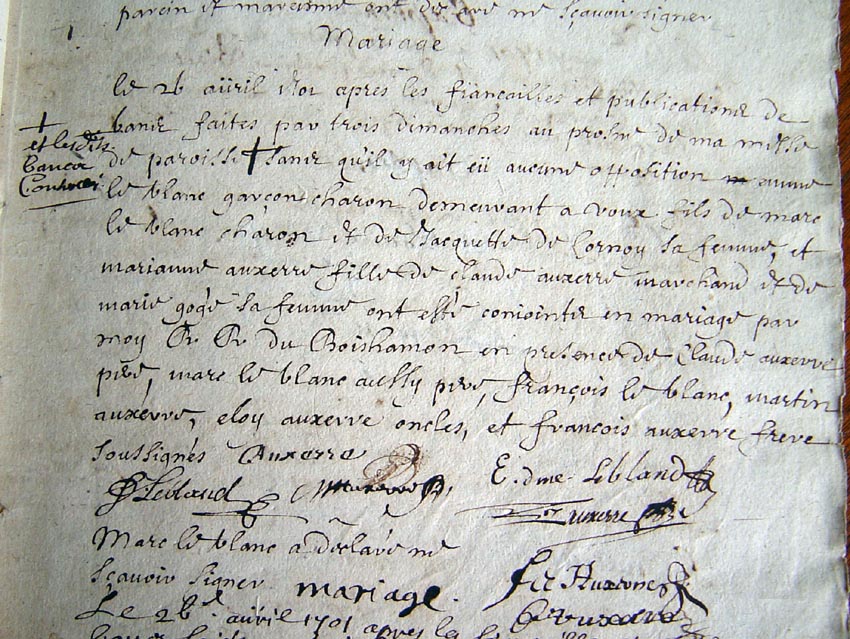 parein et mareinne ont declaré ne sçavoir signer
Mariage
le 26 auril 1701 apres les fiancailles et publications de
bans faites par trois dimanches au prosne de ma messe
+
et lesdits
bancs
Controllez
de paroisse + sans qu'il y ait eü aucune opposition
le blanc garçon charon demeurant a voux fils de marc
le blanc charon et de Jacquette de Cornoy sa femme, et
marianne auxerre fille de claude auxerre marchand et de
marie gogé sa femme ont esté conjoints en mariage par
moy du Boishamon en presence de Claude auxerre
pere, marc le blanc aussy pere, françois le blanc, martin
auxerre, eloy auxerre oncles, et francois auxerre frere
soussignés Auxerre
Leblanc Edme Leblanc
Auxerre
Marc le blanc a declaré ne
sçavoir signer
mariage.
Le 26 auril 1701 apres les